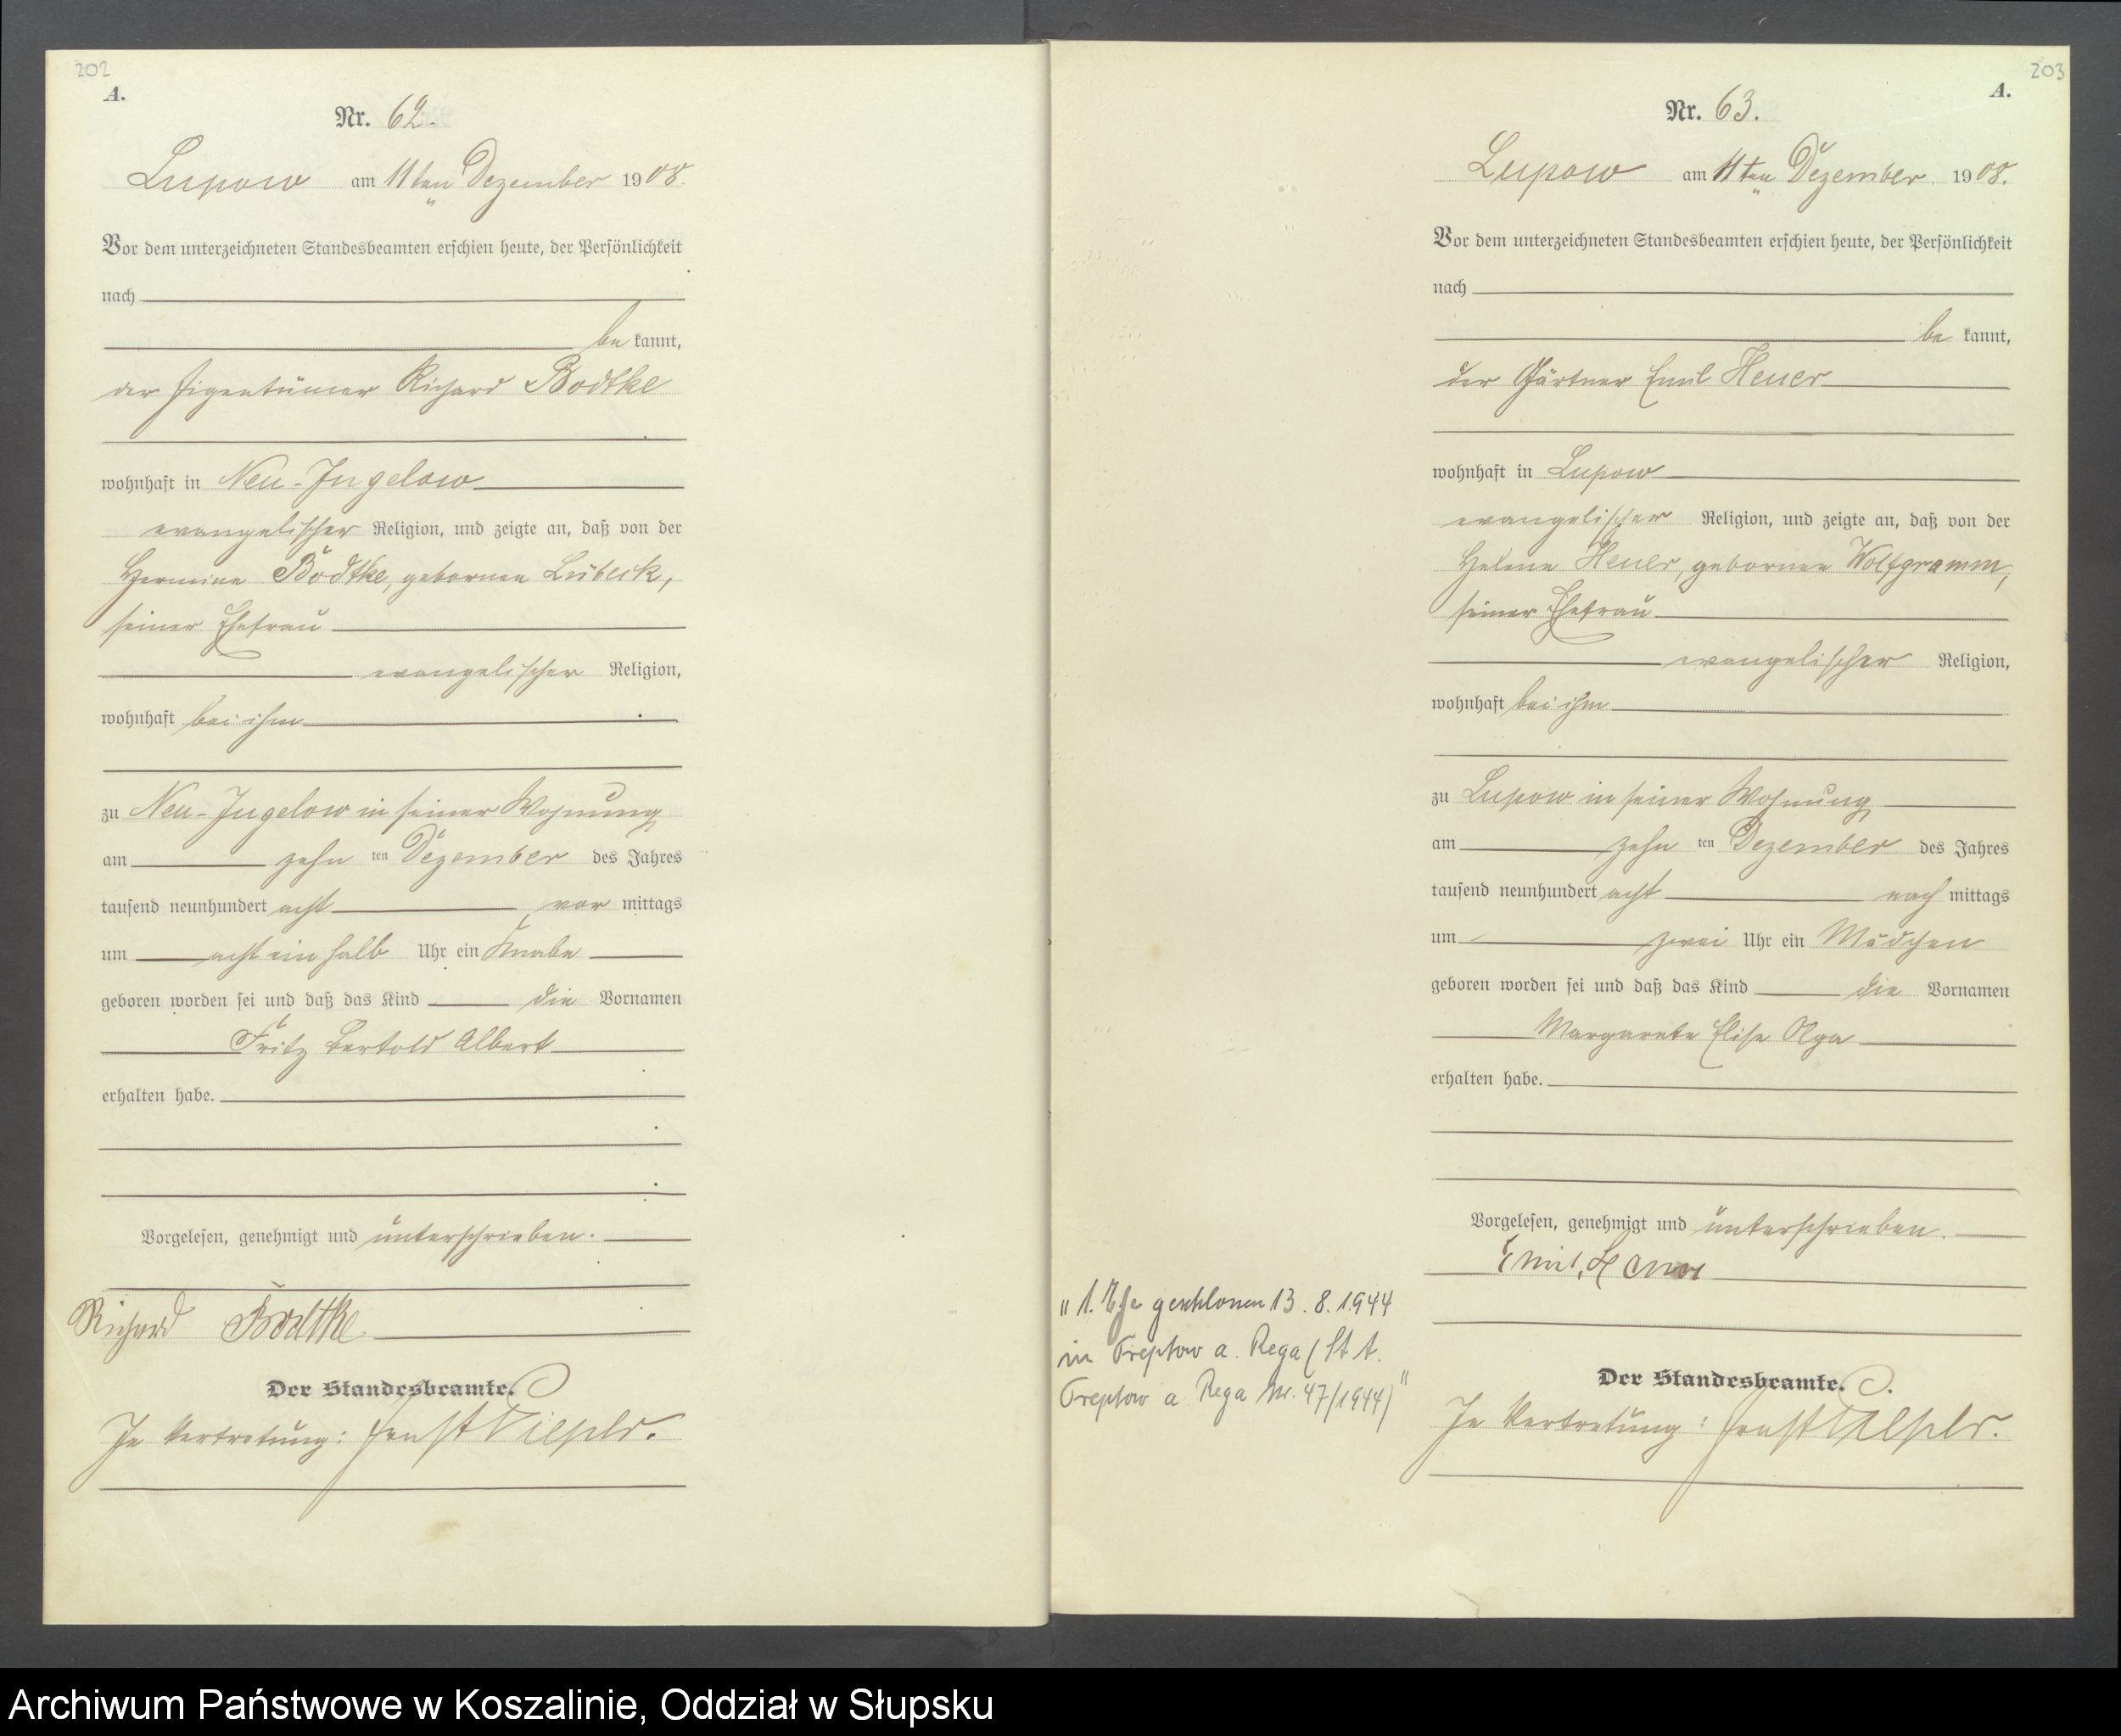 202
A.
Nr. 62.
Lupow am 11ten Dezember 1908.
Vor dem unterzeichneten Standesbeamten erschien heute, der Persönlichkeit
nach
be kannt,
der Eigentümer Richard Bodtke
wohnhaft in Neu-Jugelow
evangelischer Religion, und zeigte an, daß von der
Hermine Bodtke, geborenen Lübeck,
seiner Ehefrau
evangelischer Religion,
wohnhaft bei ihm
zu Neu-Jugelow in seiner Wohnung
am zehn ten Dezember des Jahres
tausend neunhundert acht vor mittags
um acht ein halb Uhr ein Knabe
geboren worden sei und daß das Kind die Vornamen
Fritz Bertold Albert
erhalten habe.
Vorgelesen, genehmigt und unterschrieben.
Richard Bodtke
Der Standesbeamte.
In Vertretung: Ernst
203
A.
Nr. 63.
Lupow am 11ten Dezember 1908.
Vor dem unterzeichneten Standesbeamten erschien heute, der Persönlichkeit
nach
be kannt,
der Gärtner Emil Heuer
wohnhaft in Lupow
evangelischer Religion, und zeigte an, daß von der
Helene Heuer, geborenen Wolfgramm,
seiner Ehefrau
evangelischer Religion,
wohnhaft bei ihm
zu Lupow in seiner Wohnung
am zehn ten Dezember des Jahres
tausend neunhundert acht nach mittags
um zwei Uhr ein Mädchen
geboren worden sei und daß das Kind die Vornamen
Margarete Elise Olga
erhalten habe.
Vorgelesen, genehmigt und unterschrieben.
Emil Heuer
Der Standesbeamte.
In Vertretung: Ernst
„1. Ehe geschlossen 13.8.1944
in Treptow a. Rega (St. A.
Treptow a Rega Nr. 47/1944)"
Archiwum Państwowe w Koszalinie, Oddział w Słupsku